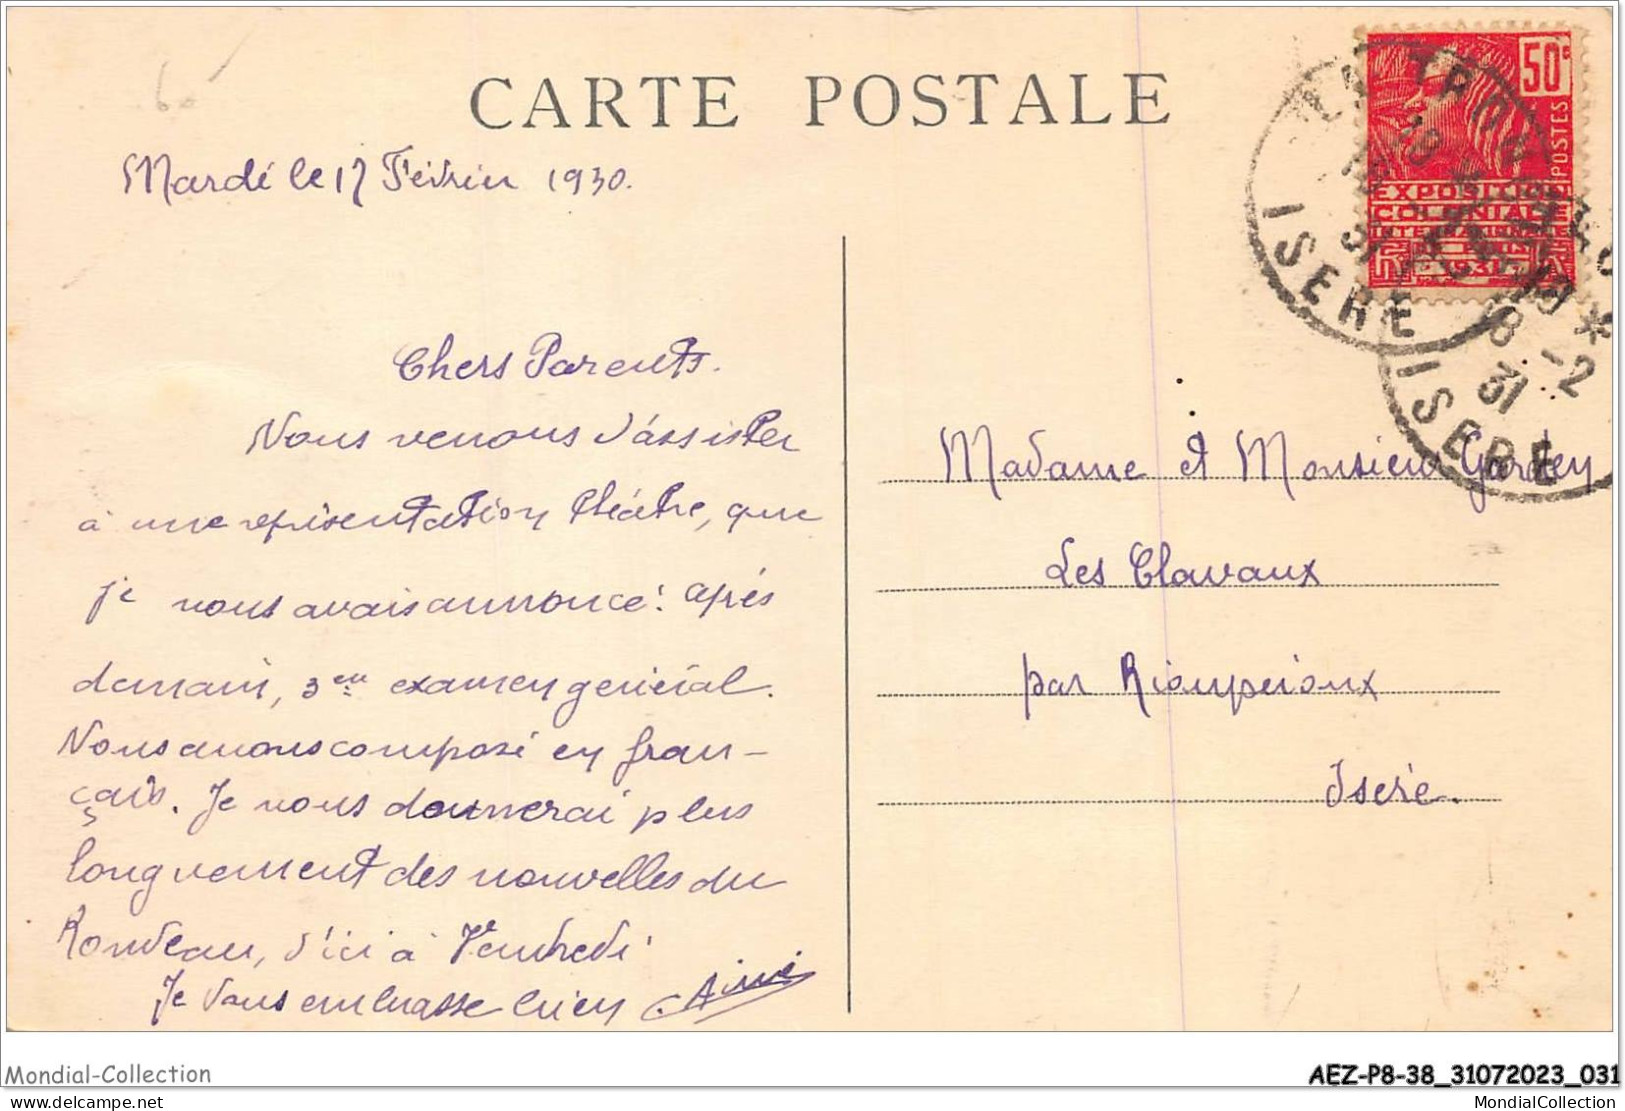 CARTE POSTALE
Mardi le 17 Février 1930.
Chers Parents.
Nous venons d'assister
à une représentation théâtre, que
je vous avais annoncé. après
demain, 3em examen général.
Nous avons composé en fran-
çais. Je vous donnerai plus
longuement des nouvelles du
Rondeau, d'ici à Vendredi
Je vous embrasse bien Aimé
50c
POSTES
EXPOSITION
COLONIALE
INTERNATIONALE
PARIS
1931
ISERE
18 -2
31
ISERE
Madame et Monsieur Garden
Les Clavaux
par Rioupéroux
Isère.
Mondial-Collection
AEZ-P8-38_31072023_031
delcampe.net
MondialCollection